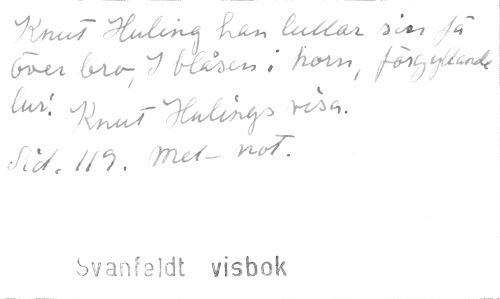 Knut Huling han lullar sin få
över bro, I blåsen i horn, förgyllande
lur! Knut Hulings visa.
Sid. 119. Mel- not.
Svanfeldt visbok